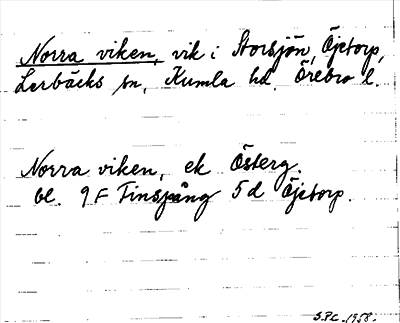 Norra viken, vik i Storsjön, Öjetorp,
Lerbäcks sn, Kumla hd. Örebro l.
Norra viken, ek Österg.
bl. 9 F Finspång 5 d Öjetorp.
S.P.C. 1958.